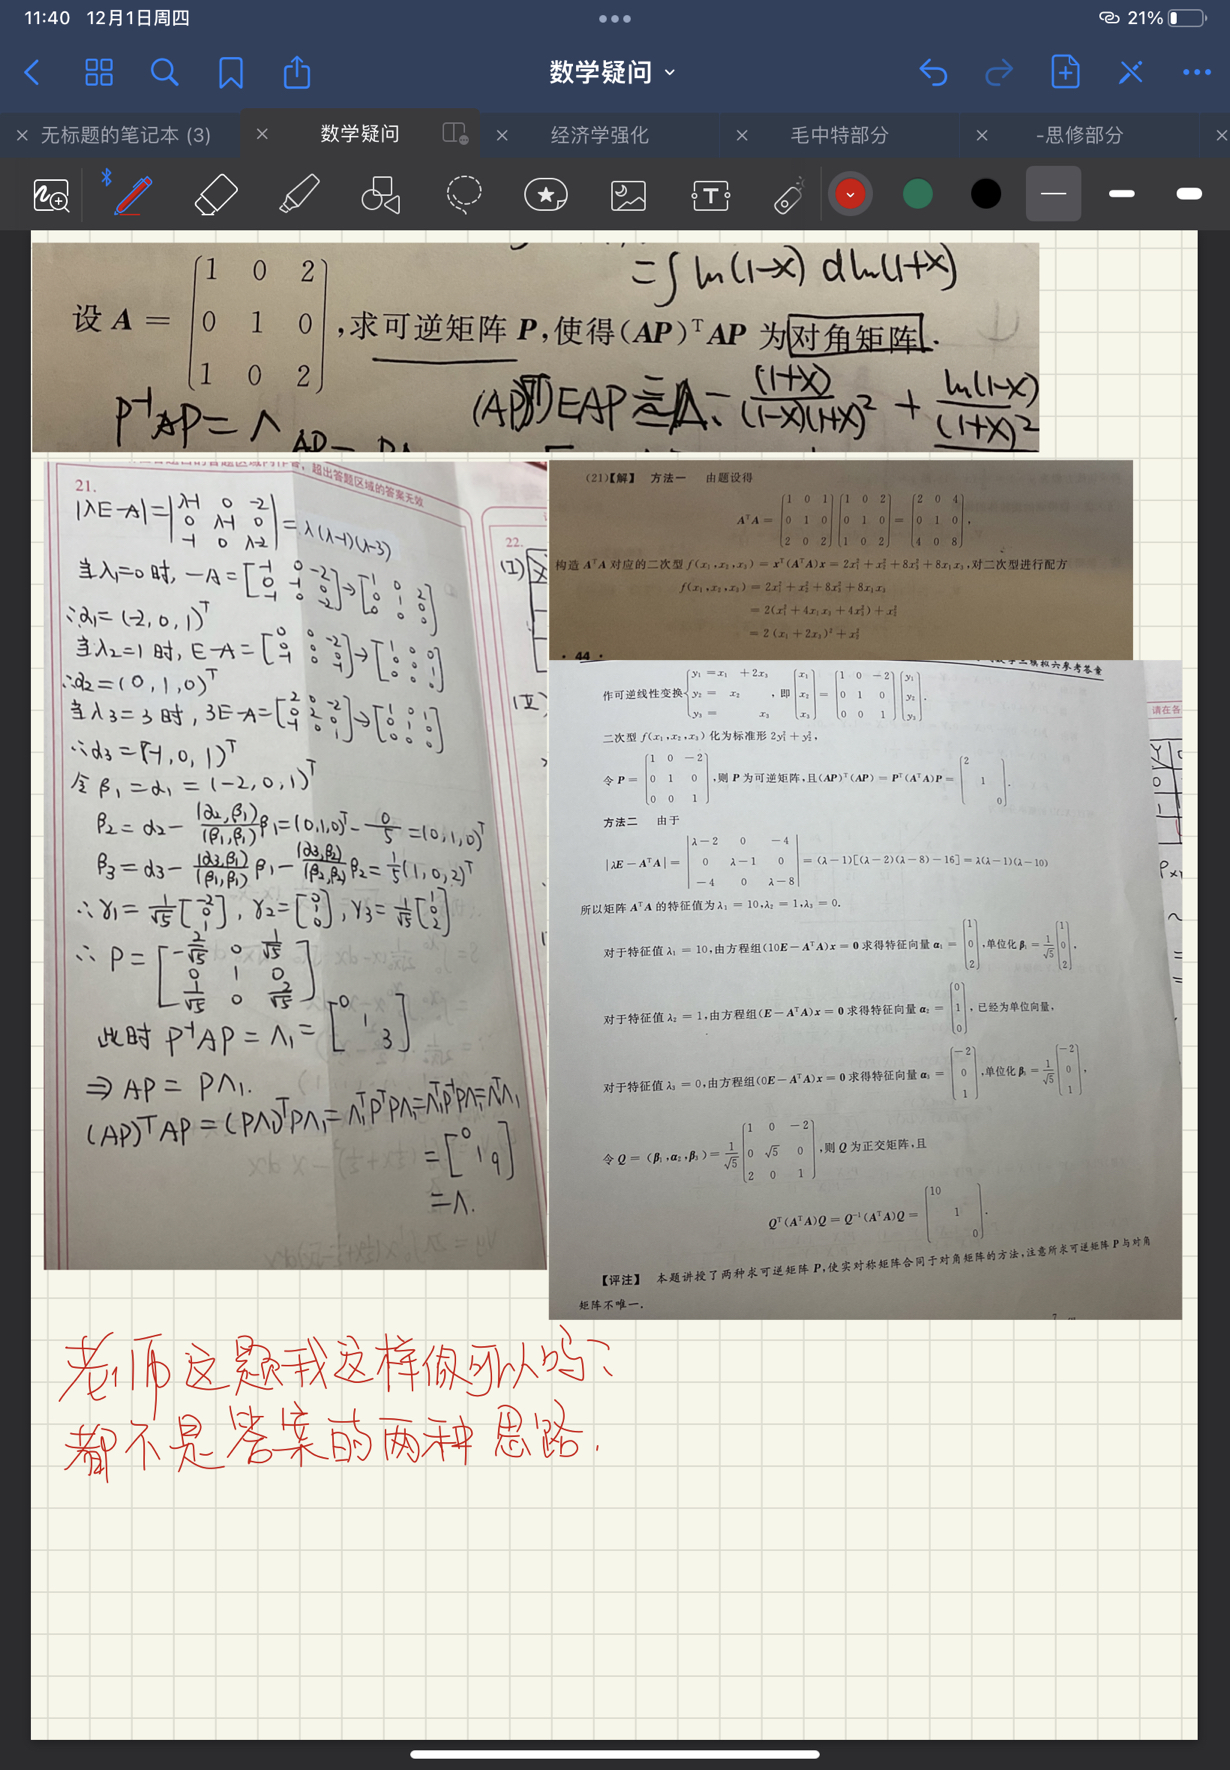 11:40 12月1日周四
21%
数学疑问
无标题的笔记本 (3)
数学疑问
经济学强化
毛中特部分
-思修部分
=∫ ln(1-x) dln(1+x)
设 A = (1 0 2; 0 1 0; 1 0 2), 求可逆矩阵 P, 使得(AP)ᵀAP 为对角矩阵.
P⁻¹AP = Λ
(1+x)/((1-x)(1+x)²) + ln(1-x)/(1+x)²
超出答题区域的答案无效
21.
|λE-A| = |λ-1 0 -2; 0 λ-1 0; -1 0 λ-2| = λ(λ-1)(λ-3)
当λ₁=0时, -A = [-1 0 -2; 0 -1 0; -1 0 -2] → [1 0 2; 0 1 0; 0 0 0]
∴α₁=(-2,0,1)ᵀ
当λ₂=1时, E-A = [0 0 -2; 0 0 0; -1 0 -1] → [1 0 0; 0 0 1; 0 0 0]
∴α₂=(0,1,0)ᵀ
当λ₃=3时, 3E-A = [2 0 -2; 0 2 0; -1 0 1] →
∴α₃=
令β₁=α₁=(-2,0,1)ᵀ
β₂=α₂-(α₂,β₁)/(β₁,β₁)β₁=(0,1,0)ᵀ-0/5=(0,1,0)ᵀ
β₃=α₃-(α₃,β₁)/(β₁,β₁)β₁-(α₃,β₂)/(β₂,β₂)β₂=1/5(1,0,2)ᵀ
∴γ₁=1/√5[-2; 0; 1], γ₂=[0; 1; 0], γ₃=1/√5[1; 0; 2]
∴P=[-2/√5 0 1/√5; 0 1 0; 1/√5 0 2/√5]
此时 P⁻¹AP=Λ₁=[0 1 3]
⇒AP=PΛ₁.
(AP)ᵀAP=(PΛ₁)ᵀPΛ₁=Λ₁ᵀPᵀPΛ₁=Λ₁ᵀP⁻¹PΛ₁=Λ₁ᵀΛ₁
=[0 1 9]
=Λ.
22.
(Ⅰ)
(Ⅱ)
(21)【解】 方法一 由题设得
AᵀA = (1 0 1; 0 1 0; 2 0 2)(1 0 2; 0 1 0; 1 0 2) = (2 0 4; 0 1 0; 4 0 8),
构造 AᵀA 对应的二次型 f(x₁,x₂,x₃) = xᵀ(AᵀA)x = 2x₁²+x₂²+8x₃²+8x₁x₃, 对二次型进行配方
f(x₁,x₂,x₃) = 2x₁²+x₂²+8x₃²+8x₁x₃
= 2(x₁²+4x₁x₃+4x₃²)+x₂²
= 2(x₁+2x₃)²+x₂²
· 44 ·
作可逆线性变换{y₁=x₁+2x₃ y₂=x₂ y₃=x₃, 即(x₁; x₂; x₃)=(1 0 -2; 0 1 0; 0 0 1)(y₁; y₂; y₃).
二次型 f(x₁,x₂,x₃)化为标准形 2y₁²+y₂²,
令 P=(1 0 -2; 0 1 0; 0 0 1), 则 P 为可逆矩阵, 且(AP)ᵀ(AP)=Pᵀ(AᵀA)P=(2 1 0).
方法二 由于
|λE-AᵀA|=|λ-2 0 -4; 0 λ-1 0; -4 0 λ-8|=(λ-1)[(λ-2)(λ-8)-16]=λ(λ-1)(λ-10)
所以矩阵 AᵀA 的特征值为λ₁=10,λ₂=1,λ₃=0.
对于特征值λ₁=10, 由方程组(10E-AᵀA)x=0 求得特征向量 α₁=(1; 0; 2), 单位化 β₁=1/√5(1; 0; 2),
对于特征值λ₂=1, 由方程组(E-AᵀA)x=0 求得特征向量 α₂=(0; 1; 0), 已经为单位向量,
对于特征值λ₃=0, 由方程组(0E-AᵀA)x=0 求得特征向量 α₃=(-2; 0; 1), 单位化 β₃=1/√5(-2; 0; 1),
令 Q=(β₁,α₂,β₃)=1/√5(1 0 -2; 0 √5 0; 2 0 1), 则 Q 为正交矩阵, 且
Qᵀ(AᵀA)Q=Q⁻¹(AᵀA)Q=(10 1 0).
【评注】 本题讲授了两种求可逆矩阵 P, 使实对称矩阵合同于对角矩阵的方法, 注意所求可逆矩阵 P 与对角
矩阵不唯一.
请在各
老师这题我这样做可以吗?
都不是答案的两种思路.